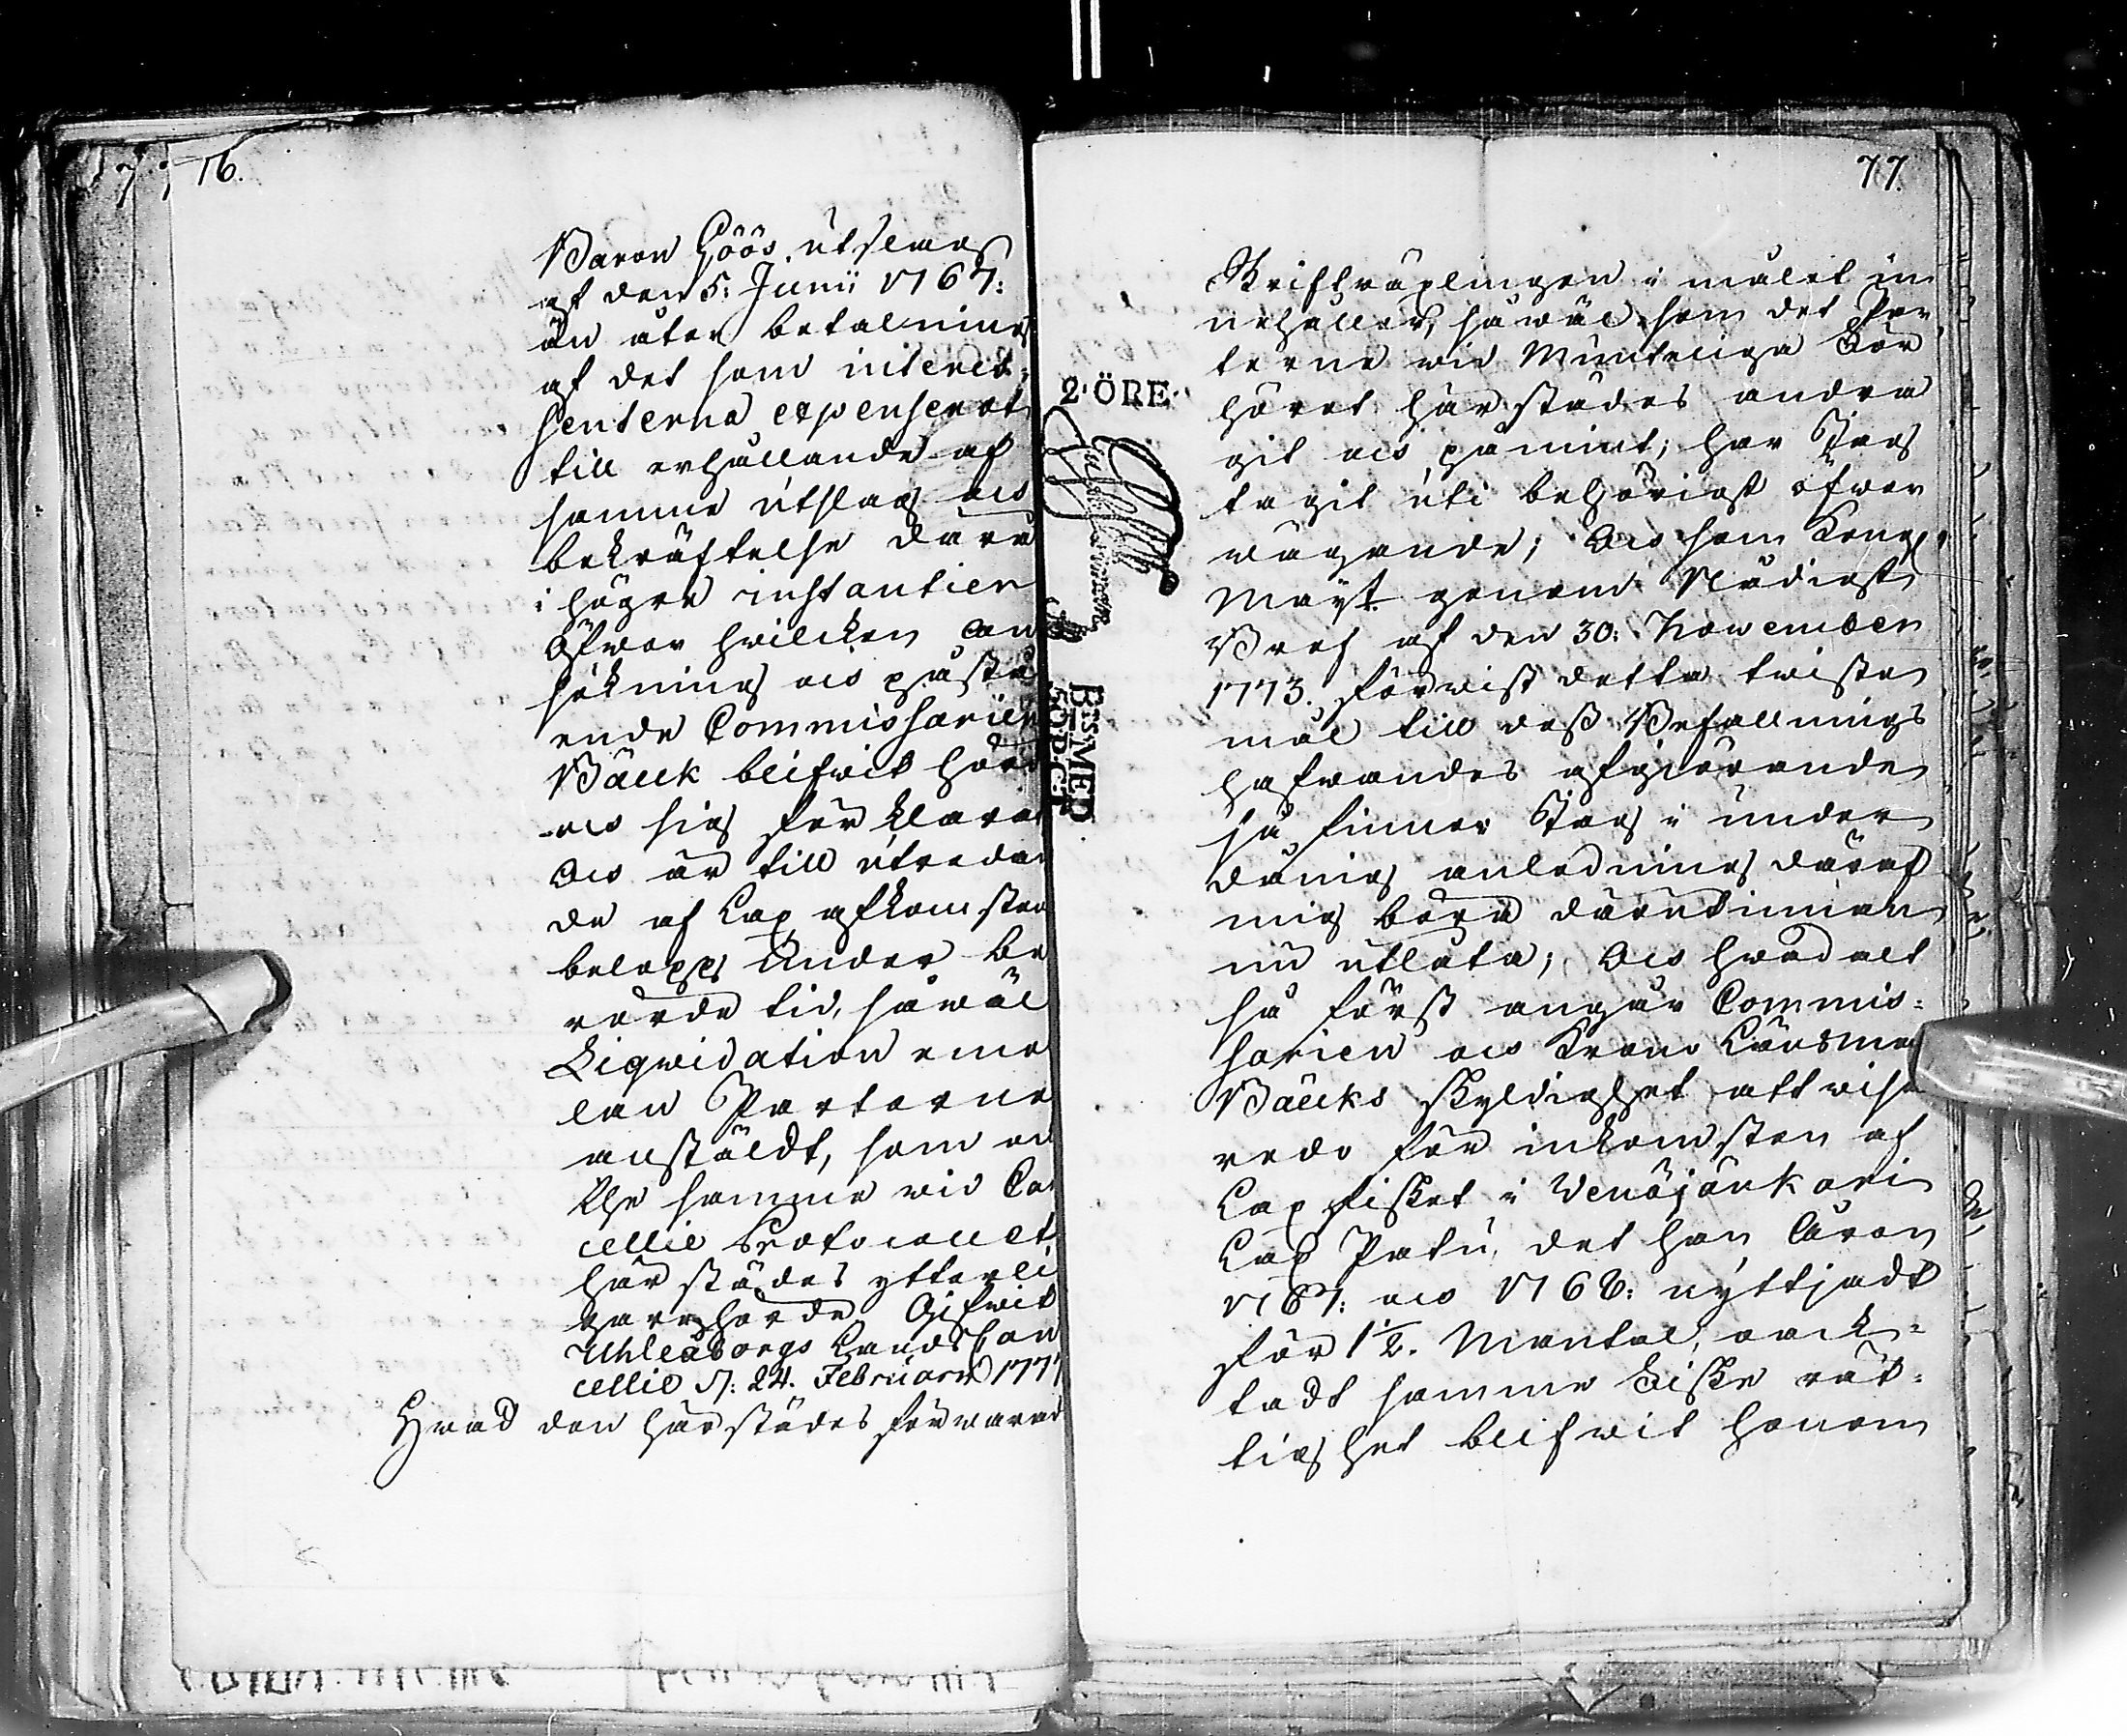 76.
Baron Göös utslag
af den 5: Junii 1767:
än åter betalning
af det som interes=
senterna expenserat
till erhållande af
samma utslag och
bekräftelse därå
i högre instantier
Öfwer hwilcken an
sökning och påstå
ende Commissarien
Bäck blifwit hörd
och sig förklarat
Och är till utredan
de af Lax afkomsten
belopp under be
rörde tid, såwäl
Liqwidation emel
lan Parterne
anstäldt, som ock
the samme wid Can
cellie Protocollet
här städes ytterli
gare hörde Gifwit
Uhleåborgs Lands Can
cellie d: 24. Februarii 1777
Hwad den härstädes förwarad
77.
Skriftwäxlingen i målet in
nehåller, såwäl som det Par
terne wid Munteliga För
höret härstädes andra
git och påmint, har Jag
tagit uti behörigt öfwer
wägande; Och som Kongl.
Mayt genom Nådigst
Bref af den 30: November
1773. förwist detta twiste
mål till dess Befallnings
hafwandes afgiörande
så finner Jag i under
dånig anledning däraf
mig böra därutinnan
nu utlåta; Och hwad alt
så först angår Commis=
sarien och Krono Länsman
Bäcks skyldighet att wisa
redo för inkomsten af
Lax fisket i Wenäjänkari
Lax Patu, det han Åren
1767: och 1768: nyttjadt
för 1 1/2. Mantal, oack=
tadt samma Fiske rät=
tighet blifwit honom
2 ÖRE